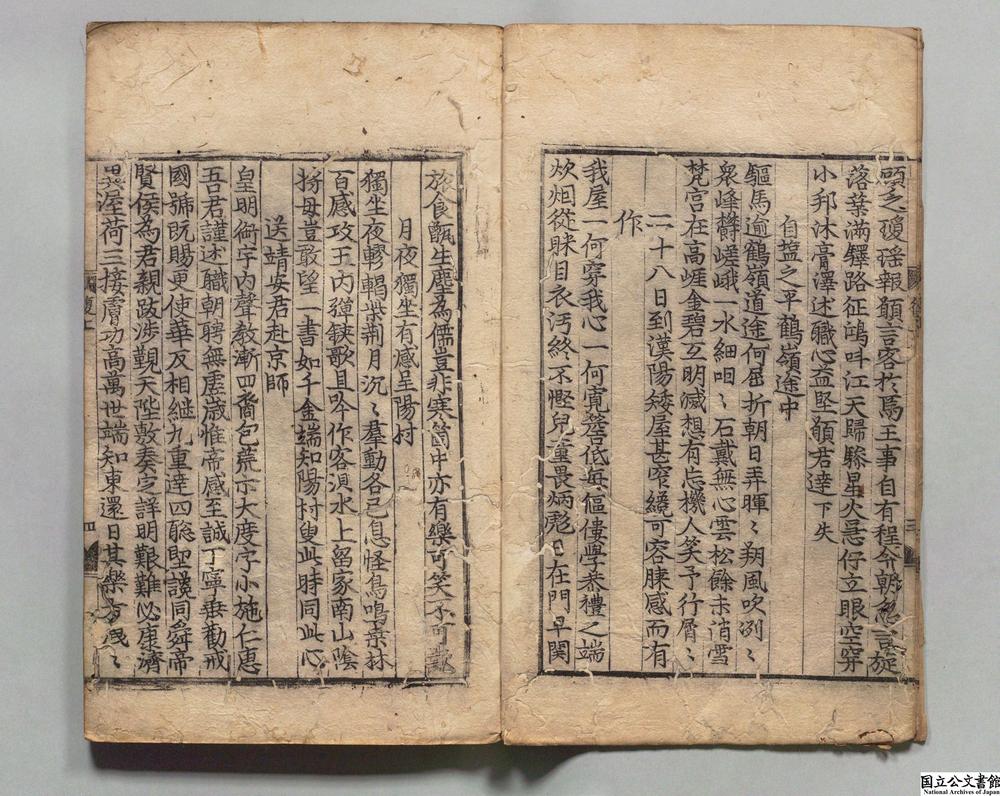 願乏瓊瑤報願言客於焉王事自有程弇朝忽言旋
落葉滿驛路征鴻呌江天歸驂星火忌仔立眼空穿
小邦沐膏澤述職心益堅願君達下失
自盐之平鶴嶺途中
驅馬逾鶴嶺道途何屈折朝日弄暉〻朔風吹冽〻
衆峰欝嵯峨一水細咽〻石戴無心雲松餘未消雪
梵宫在高崕金碧互明滅想有忘機人笑予行屑〻
二十八日到漢陽矮屋甚窄纔可容膝感而有
作
我屋一何穿我心一何寛簷低每傴僂學恭禮之端
炊烟從眯目衣汚終不慳兒童畏炳彪日在門早関
旅食甑生塵為儒豈非寒箇中亦有樂可笑不可歎
月夜獨坐有感呈陽村
獨坐夜轇轕柴荆月沉〻羣動各已息怪鳥鳴榮林
百感攻王内彈鋏歌且吟作客浿水上留家南山陰
搦毋豈敢望一書如千金端知陽村叟此時同此心
送靖安君赴京師
皇明御宇内聲教漸四裔包荒示大度字小施仁惠
吾君謹述職朝聘無虚歲惟帝感至誠丁寧垂勸戒
國號既賜更使華反相継九重達四聡聖謨同舜帝
賢侯為君親跋涉觀天陛敷奏定詳明艱難必康濟
異渥荷三接膚功高萬世端知東還日其樂方洩〻
四
國立公文書館
National Archives of Japan